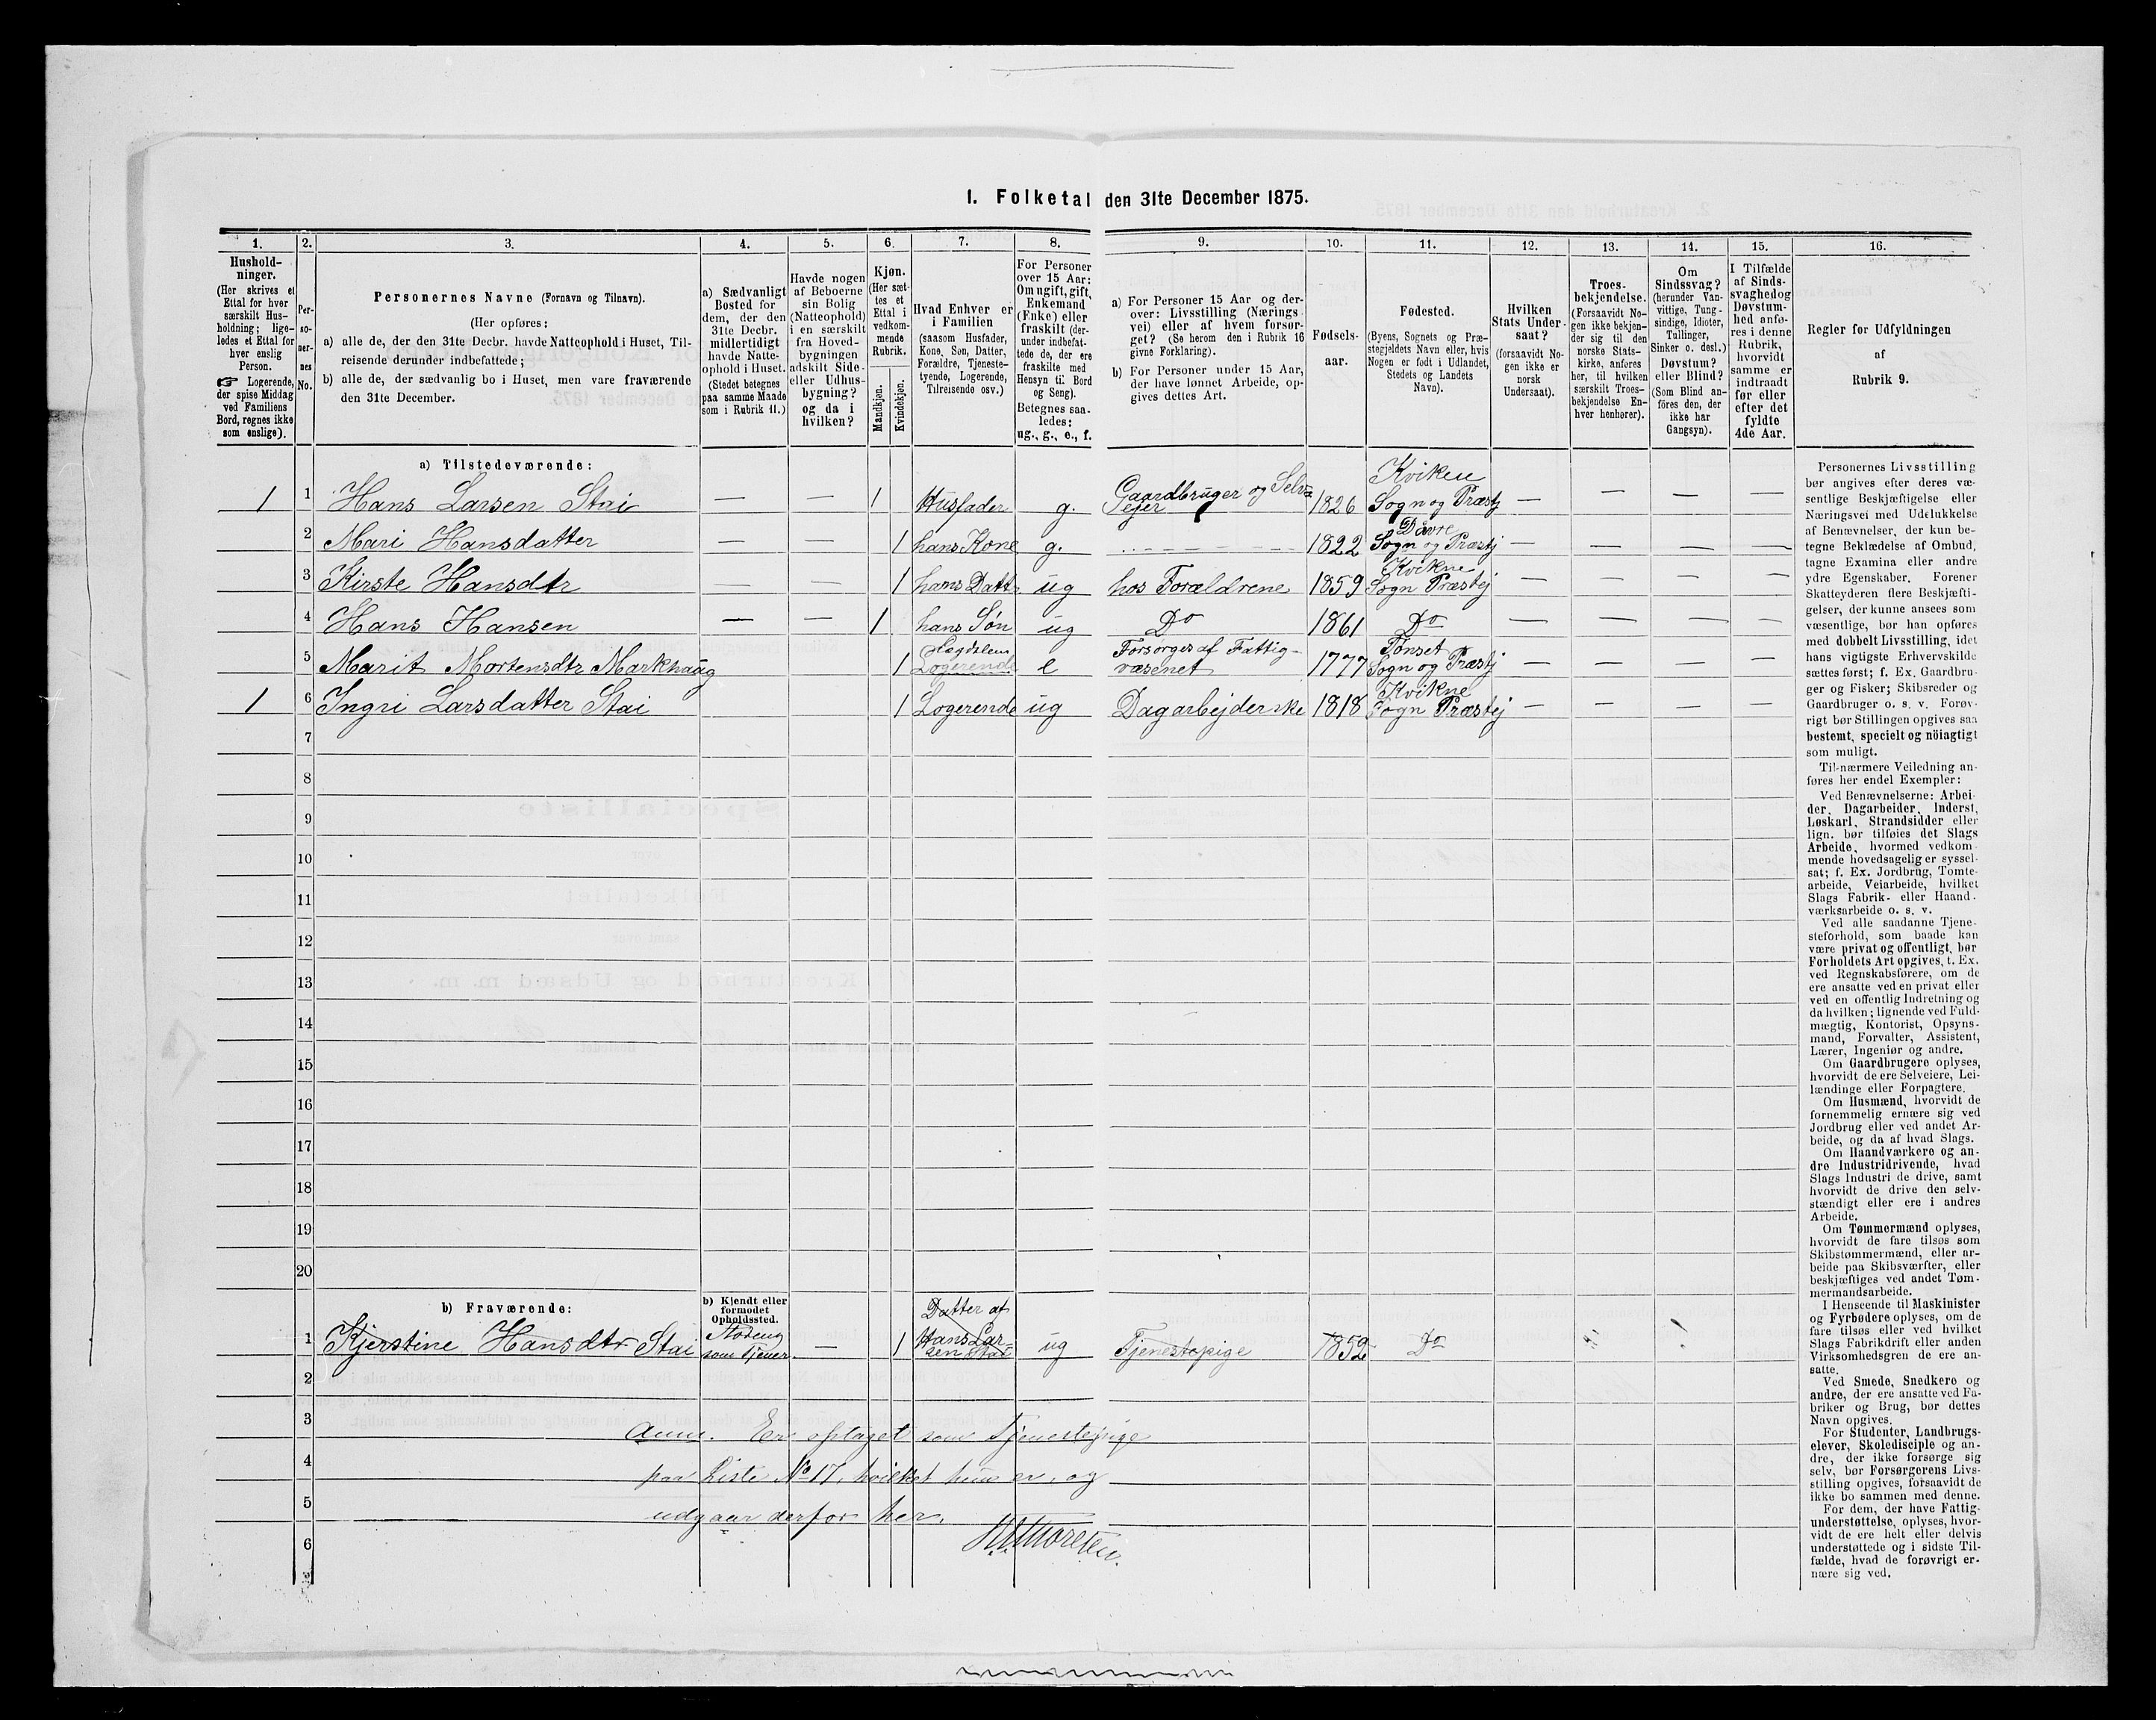 1. Folketal den 31te December 1875.
1. 2. 3. 4. 5. 6. 7. 8. 9. 10. 11. 12. 13. 14. 15. 16.
Hushold-
ninger.
(Her skrives et
Ettal for hver
særskilt Hus-
holdning; lige-
ledes et Ettal for
hver enslig
Person.
☞ Logerende,
der spise Middag
ved Familiens
Bord, regnes ikke
som enslige).
Per-
so-
ner-
nes
No.
Personernes Navne (Fornavn og Tilnavn).
(Her opføres:
a) alle de, der den 31te Decbr. havde Natteophold i Huset, Til-
reisende derunder indbefattede;
b) alle de, der sædvanlig bo i Huset, men vare fraværende
den 31te December.
a) Sædvanligt
Bosted for
dem, der den
31te Decbr.
midlertidigt
havde Natte-
ophold i Huset.
(Stedet betegnes
paa samme Maade
som i Rubrik 11.)
Havde nogen
af Beboerne
sin Bolig
(Natteophold)
i en særskilt
fra Hoved-
bygningen
adskilt Side-
eller Udhus-
bygning?
og da i
hvilken?
Kjøn.
(Her sæt-
tes et
Ettal i
vedkom-
mende
Rubrik.
Mandkjøn.
Kvindekjøn.
Hvad Enhver er
i Familien
(saasom Husfader,
Kone, Søn, Datter,
Forældre, Tjeneste-
tyende, Logerende,
Tilreisende osv.)
For Personer
over 15 Aar:
Om ugift, gift,
Enkemand
(Enke) eller
fraskilt (der-
under indbefat-
tede de, der ere
fraskilte med
Hensyn til Bord
og Seng).
Betegnes saa-
ledes:
ug., g., e., f.
a) For Personer 15 Aar og der-
over: Livsstilling (Nærings-
vei) eller af hvem forsør-
get? (Se herom den i Rubrik 16
givne Forklaring).
b) For Personer under 15 Aar,
der have lønnet Arbeide, op-
gives dettes Art.
Fødsels-
aar.
Fødested.
(Byens, Sognets og Præ-
stegjeldets Navn eller, hvis
Nogen er født i Udlandet,
Stedets og Landets
Navn).
Hvilken
Stats Under-
saat?
(forsaavidt No-
gen ikke er
norsk
Undersaat).
Troes-
bekjendelse.
(Forsaavidt No-
gen ikke bekjen-
der sig til den
norske Stats-
kirke, anføres
her, til hvilken
særskilt Troes-
bekjendelse En-
hver henhører).
Om
Sindssvag?
(herunder Van-
vittige, Tung-
sindige, Idioter,
Tullinger,
Sinker o. desl.)
Døvstum?
eller Blind?
(Som Blind an-
föres den, der
ikke har
Gangsyn).
I Tilfælde
af Sinds-
svaghed og
Døvstum-
hed anfø-
res i denne
Rubrik,
hvorvidt
samme er
indtraadt
før eller
efter det
fyldte
4de Aar.
Regler for Udfyldningen
af
Rubrik 9.
a) Tilstedeværende:
1 1 Hans Larsen Stai — — 1 Husfader g. Gaardbruger og Selv- ejer 1826 Kviken Sogn og Præstj — — — —
2 Mari Hansdatter — — 1 hans Kone g. 1822 Dåvre Sogn og Præstj — — — —
3 Kirste Hansdtr — — 1 hans Dattr ug hos Forældrene 1859 Kvikne Sogn Præstej — — — —
4 Hans Hansen — — 1 hans Søn ug Do 1861 Do — — — —
5 Marit Mortensdtr Markhaug 1 Lægdslem Logerende e Forsørges af Fattig- væsenet 1777 Tønset Sogn og Præstj — — — —
1 6 Ingri Larsdatter Stai 1 Logerende ug Dagarbejderske 1818 Kvikne Sogn Præstej — — — —
7
8
9
10
11
12
13
14
15
16
17
18
19
20
b) Fraværende:
b) Kjendt eller
formodet
Opholdssted.
1 Kjerstine Hansdtr Stai som tjener — 1 Datter af Hans Lar- sen Stai ug Tjenestepige 1852 Do
2
3 Anm. Er optaget som Tjenestepige
4 paa Liste No 17, hvilket hun er, og
5 udgaar derfor her.
6
Personernes Livsstilling
bør angives efter deres væ-
sentlige Beskjæftigelse eller
Næringsvei med Udelukkelse
af Benævnelser, der kun be-
tegne Beklædelse af Ombud,
tagne Examina eller andre
ydre Egenskaber. Forener
Skatteyderen flere Beskjæfti-
gelser, der kunne ansees som
væsentlige, bør han opføres
med dobbelt Livsstilling, idet
hans vigtigste Erhvervskilde
sættes først; f. Ex. Gaardbru-
ger og Fisker; Skibsreder og
Gaardbruger o. s. v. Forøv-
rigt bør Stillingen opgives saa
bestemt, specielt og nöiagtigt
som muligt.
Til nærmere Veiledning an-
føres her endel Exempler:
Ved Benævnelserne: Arbei-
der, Dagarbeider, Inderst,
Løskarl, Strandsidder eller
lign. bør tilføies det Slags
Arbeide, hvormed vedkom-
mende hovedsagelig er syssel-
sat; f. Ex. Jordbrug, Tomte-
arbeide, Veiarbeide, hvilket
Slags Fabrik- eller Haand-
værksarbeide o. s. v.
Ved alle saadanne Tjene-
steforhold, som baade kan
være privat og offentligt, bør
Forholdets Art opgives, t. Ex.
ved Regnskabsførere, om de
ere ansatte ved en privat eller
ved en offentlig Indretning og
da hvilken; lignende ved Fuld-
mægtig, Kontorist, Opsyns-
mand, Forvalter, Assistent,
Lærer, Ingeniør og andre.
Om Gaardbrugere oplyses,
hvorvidt de ere Selveiere, Lei-
lændinge eller Forpagtere.
Om Husmænd, hvorvidt de
fornemmelig ernære sig ved
Jordbrug eller ved andet Ar-
beide, og da af hvad Slags.
Om Haandværkere og an-
dre Industridrivende, hvad
Slags Industri de drive, samt
hvorvidt de drive den selv-
stændigt eller ere i andres
Arbeide.
Om Tømmermænd oplyses,
hvorvidt de fare tilsøs som
Skibstømmermænd, eller ar-
beide paa Skibsværfter, eller
beskjæftiges ved andet Tøm-
mermandsarbeide.
I Henseende til Maskinister
og Fyrbødere oplyses, om de
fare tilsøs eller ved hvilket
Slags Fabrikdrift eller anden
Virksomhedsgren de ere an-
satte.
Ved Smede, Snedkere og
andre, der ere ansatte ved Fa-
briker og Brug, bør dettes
Navn opgives.
For Studenter, Landbrugs-
elever, Skoledisciple og an-
dre, der ikke forsørge sig
selv, bør Forsørgerens Livs-
stilling opgives, forsaavidt de
ikke bo sammen med denne.
For dem, der have Fattig-
understøttelse, oplyses, hvor-
vidt de ere helt eller delvis
understøttede og i sidste Til-
fælde, hvad de forøvrigt er-
nære sig ved.